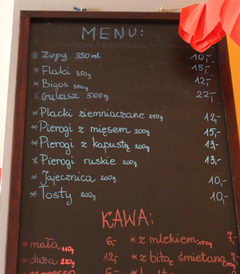 MENU:
* Zupy 350ml 10,-
* Flaki 350g 15,-
* Bigos 350g 12,-
* Gulasz 500g 22,-
* Placki ziemniaczane 12,-
* Pierogi z mięsem 200g 15,-
* Pierogi z kapustą 200g 13,-
* Pierogi ruskie 200g 13,-
* Jajecznica 200g 10,-
* Tosty 200g 10,-
KAWA:
* mała 6,- * z mlekiem 7,-
* duża 12,- * z bitą śmietaną